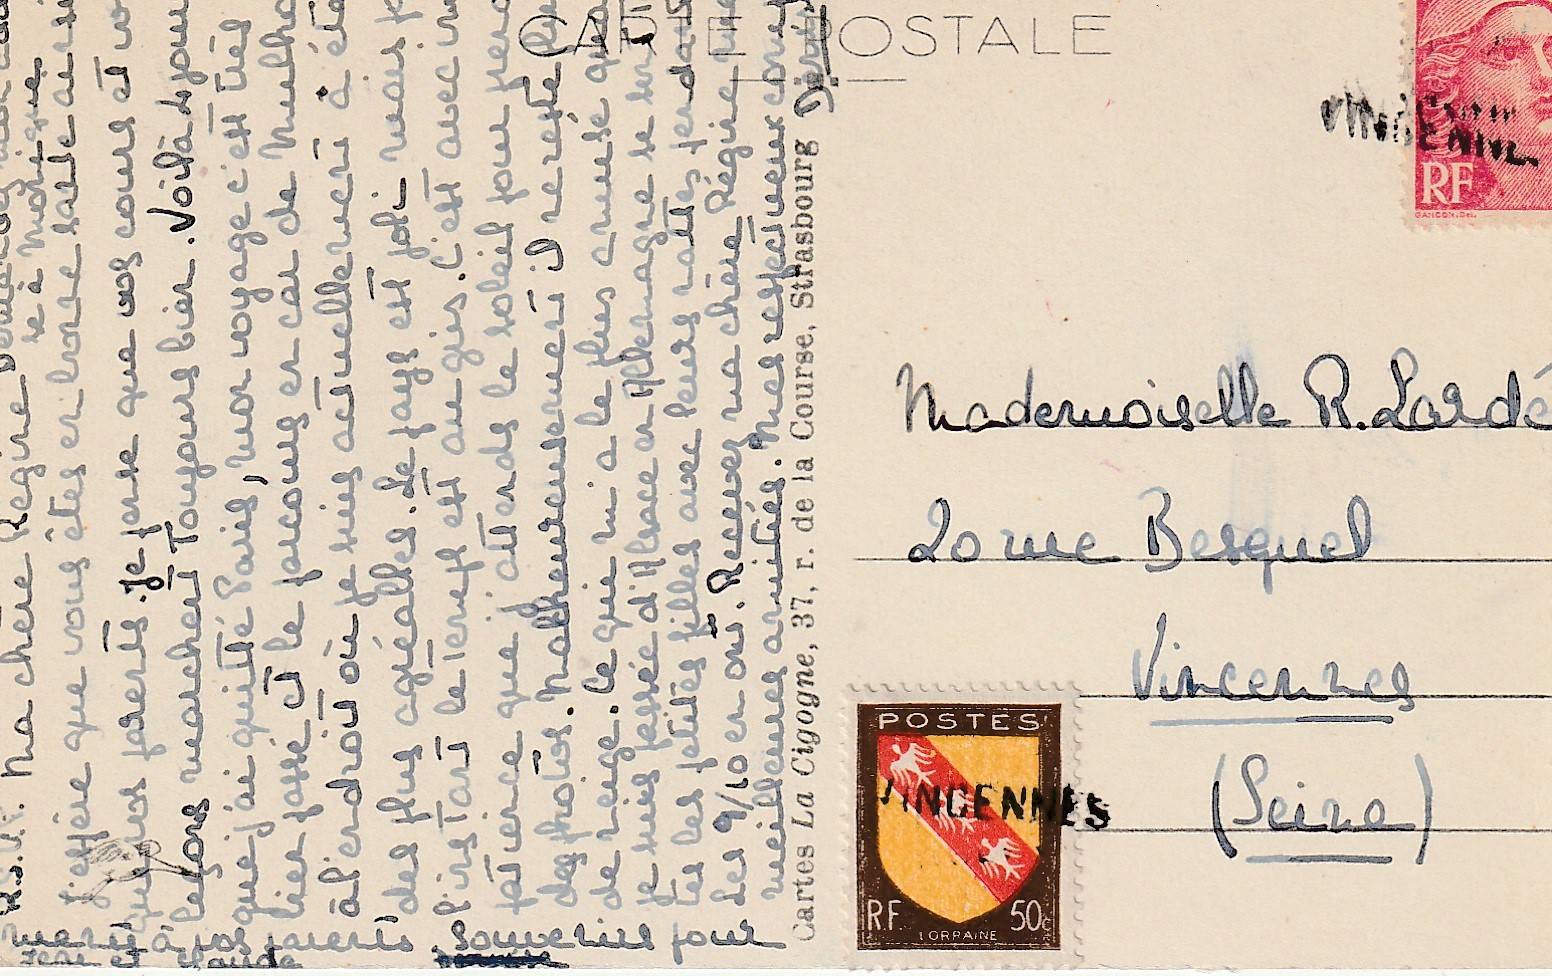 CARTE POSTALE
VINCENNE
RF
GANDON.DEL.
Mademoiselle R. Lardé
20 rue Besquel
Vincennes
(Seine)
POSTES
VINCENNES
RF 50c
LORRAINE
Cartes La Cigogne, 37, r. de la Course, Strasbourg
R.S.V.P. Ma chère Régine
à Monique
J'espère que vous êtes en bonne santé ainsi
que vos parents. Je pense que vos cours et vos
leçons marchent toujours bien. Voilà 4 jours
que j'ai quitté Paris, mon voyage c'est très
bien passé et le parcours en car de Mulhouse
à l'endroit où je suis actuellement a été
des plus agréables. Le pays est joli mais
l'instant le temps est au gris. C'est avec
patience que j'attends le soleil pour
des photos. Malheureusement il ne reste
de neige. Ce qui m'a le plus amusé quand
je suis passée d'Alsace en Allemagne se sont
les petites filles avec leurs nattes pendant
des 9/10 en ans. Recevez ma chère Régine mes
meilleures amitiés. Mes respectueux
à vos parents souvenirs pour
claude